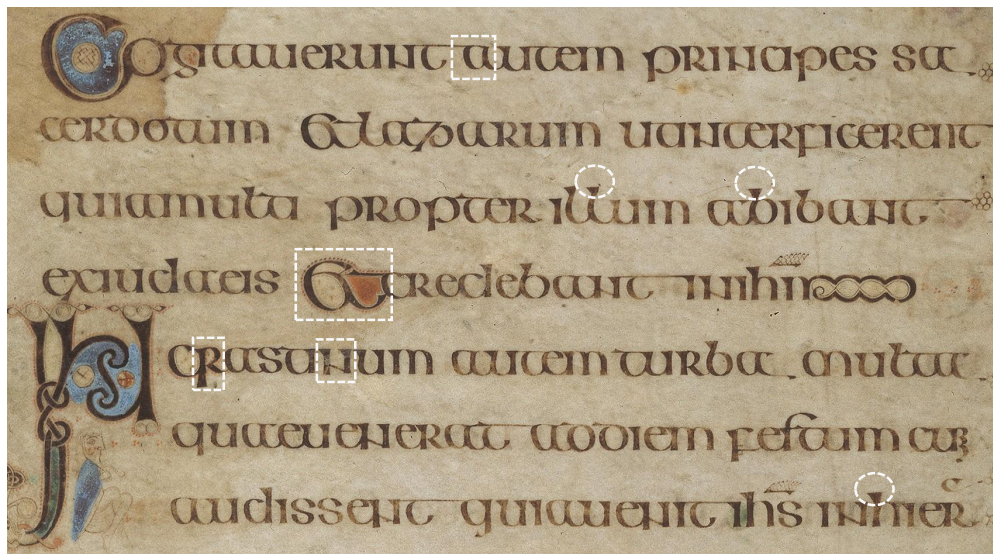 Cogitauerunt autem principes sa
cerdotum et lazarum utinterficerent
quiamulti propter illum abibant
exiudaeis et credebant inihm̅
IN crastinum autem turba multa
quaeuenerat addiem festum cuꝫ
audissent quiauenit ih̅s inhier